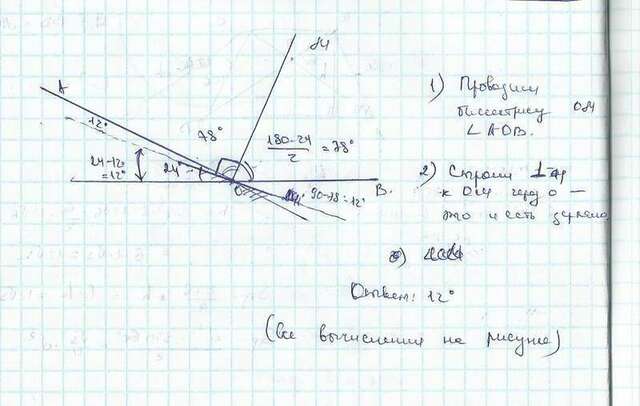 М
A
12°
78°
180-24
2
= 78°
24-12
= 12°
24°
O
90-78 = 12°
B
1) Проводим
биссектрису ОМ
∠AOB.
2) Строим ⊥
к ОМ через О —
это и есть зеркало
3)
Ответ: 12°
(все вычисления на рисунке)